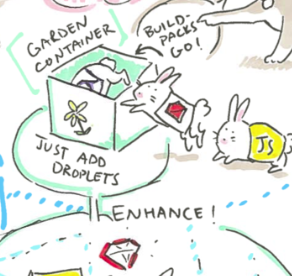 GARDEN
CONTAINER
BUILD-
PACKS
GO!
JS
JUST ADD
DROPLETS
ENHANCE!